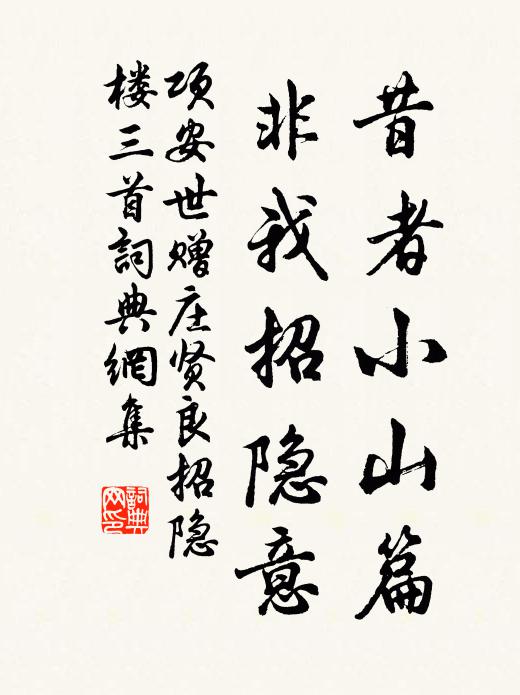 昔者小山篇
非我招隐意
项安世赠庄贤良招隐
楼三首詞典網集
詞典網印